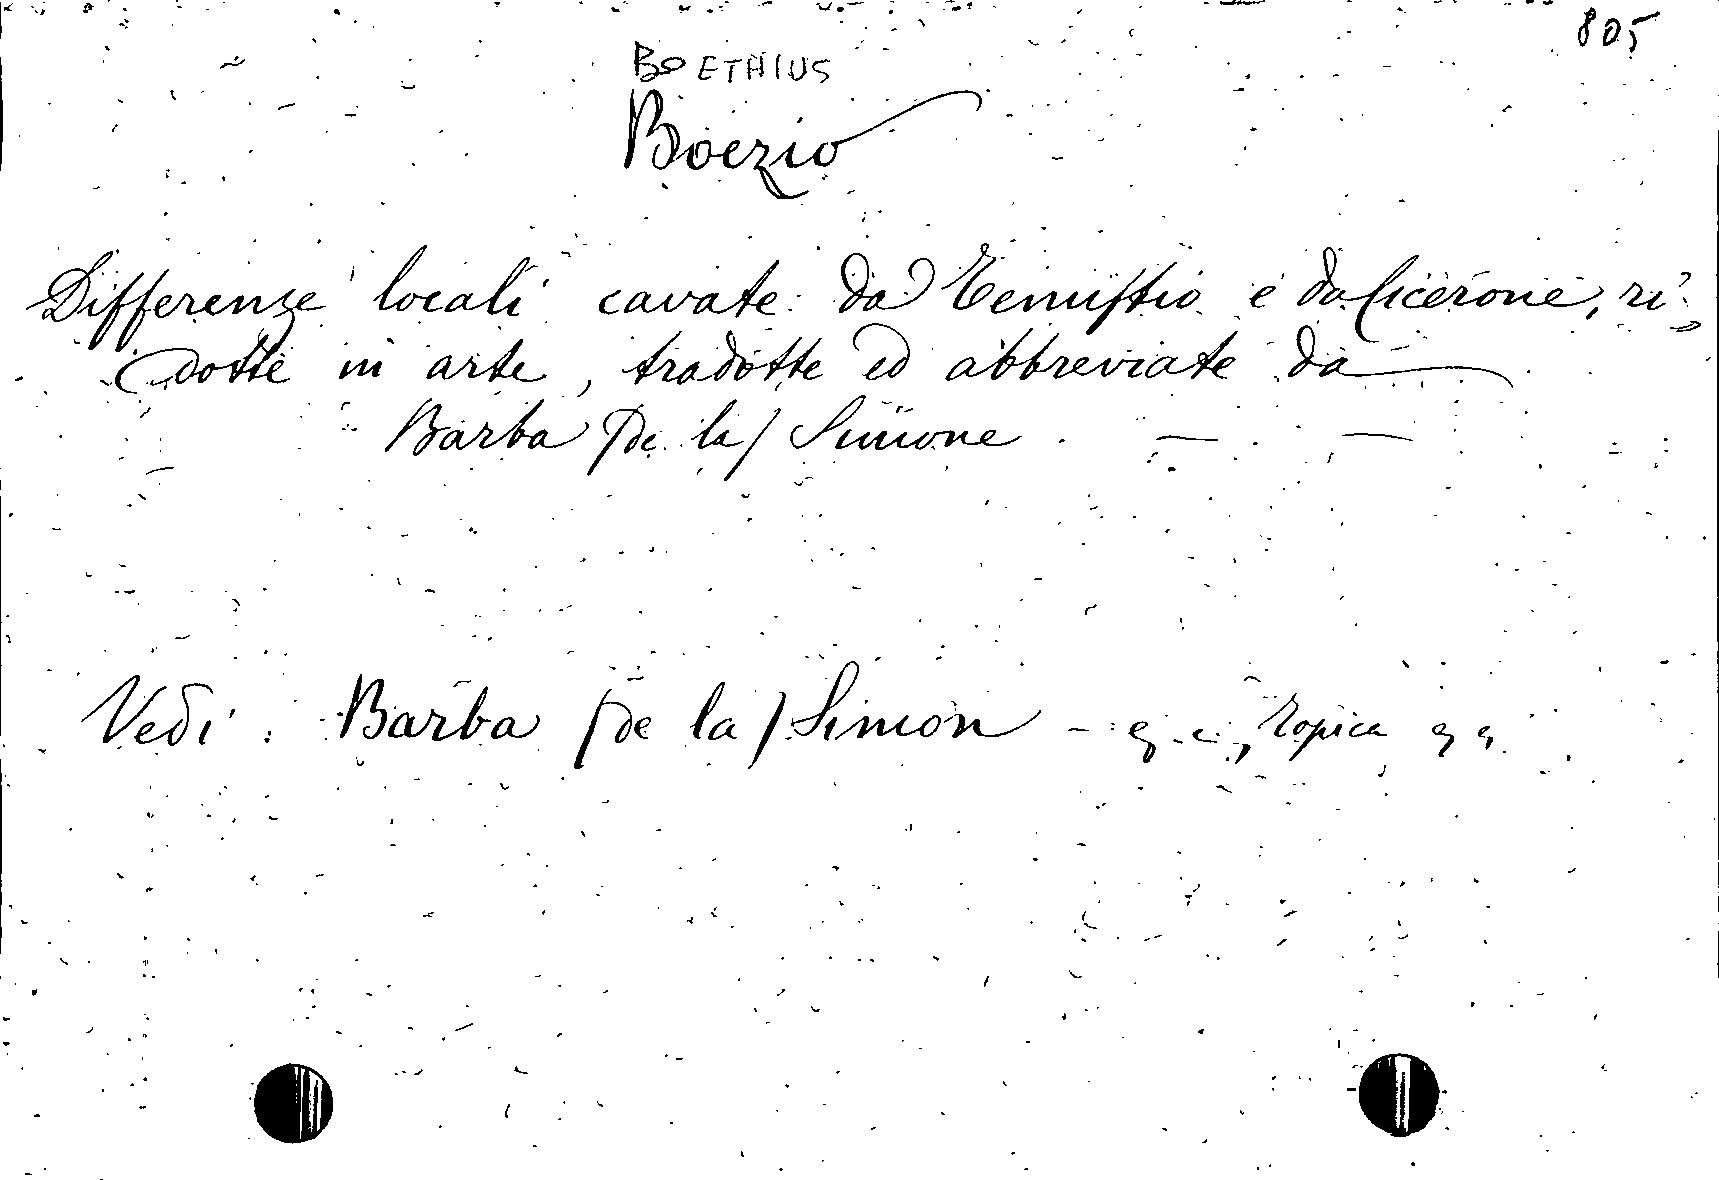 805
BOETHIUS
Boezio
Differenze locali cavate da Temistio e da Cicerone, ri-
dotte in arte, tradotte ed abbreviate da
Barba (de la) Simone. — —
Vedi: Barba (de la) Simon - Topica